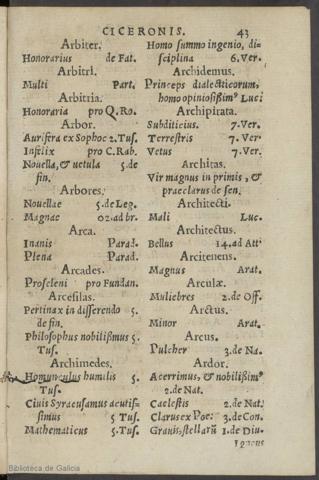 CICERONIS. 43
Arbiter.
Honorarius de Fat.
Arbitri.
Multi Part.
Arbitria.
Honoraria pro Q. Ro.
Arbor.
Aurifera ex Sophoc 2. Tus.
Infelix pro C. Rab.
Nouella, & uetula 5. de
fin.
Arbores.
Nouellae 5. de Leg.
Magnae 02. ad br.
Arca.
Inanis Parad.
Plena Parad.
Arcades.
Proseleni pro Fundan.
Arcesilas.
Pertinax in disserendo 5.
de fin.
Philosophus nobilißimus 5.
Tus.
Archimedes.
Homunculus humilis 5.
Tus.
Ciuis Syracusamus acutis-
simus 5 Tus.
Mathematicus 5. Tus.
Homo summo ingenio, di-
sciplina 6. Ver.
Archidemus.
Princeps dialecticorum,
homo opiniosißim⁹ Luc:
Archipirata.
Subditicius. 7. Ver.
Terrestris 7. Ver.
Vetus 7. Ver.
Architas.
Vir magnus in primis, &
praeclarus de sen.
Architecti.
Mali Luc.
Architectus.
Bellus 14. ad Att.
Arcitenens.
Magnus Arat.
Arculæ.
Muliebres 2. de Off.
Arctus.
Minor Arat.
Arcus.
Pulcher 3. de Na.
Ardor.
Acerrimus, & nobilißim⁹
2. de Nat.
Caelestis 2. de Nat.
Clarus ex Poe: 3. de Con.
Grauis, stellarū 1. de Diu.
Igneus
Biblioteca de Galicia